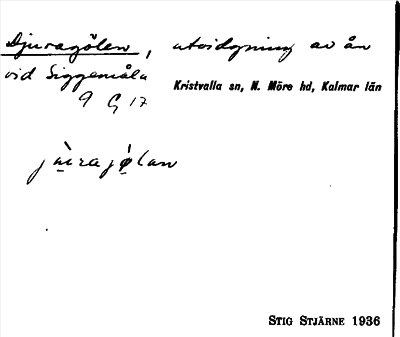 Djuragölen, utvidgning av ån
vid Siggemåla
Kristvalla sn, N. Möre hd, Kalmar län
9 G 17
STIG STJÄRNE 1936